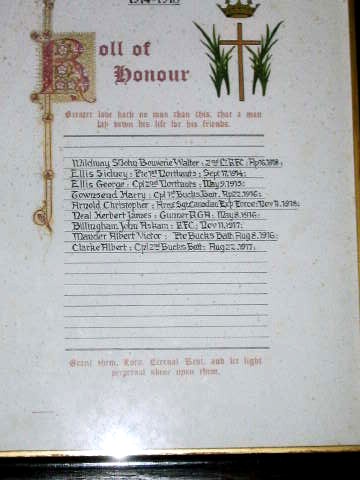 1914-1918
Roll of
Honour
Greater love hath no man than this, that a man
lay down his life for his friends.
Mildmay St John Bouverie Walter : 2nd Lt. RFC : Ap 16, 1918 :
Ellis Sidney : Pte 1st Northants : Sept 17, 1914 :
Ellis George : Cpl 2nd Northants : May 9, 1915 :
Townsend Harry : Cpl 1st Bucks Batt : Ap 22, 1916 :
Arnold Christopher : Canadian Exp Force : Nov 11, 1918 :
Neal Herbert James : Gunner R.G.A : May 8, 1916 :
Billingham John Askam : RFC : Nov 11, 1917 :
Mander Albert Victor : Pte Bucks Batt : Aug 8, 1916 :
Clarke Albert : Cpl 2nd Bucks Batt : Aug 22, 1917 :
Grant them, Lord, Eternal Rest, and let light
perpetual shine upon them.